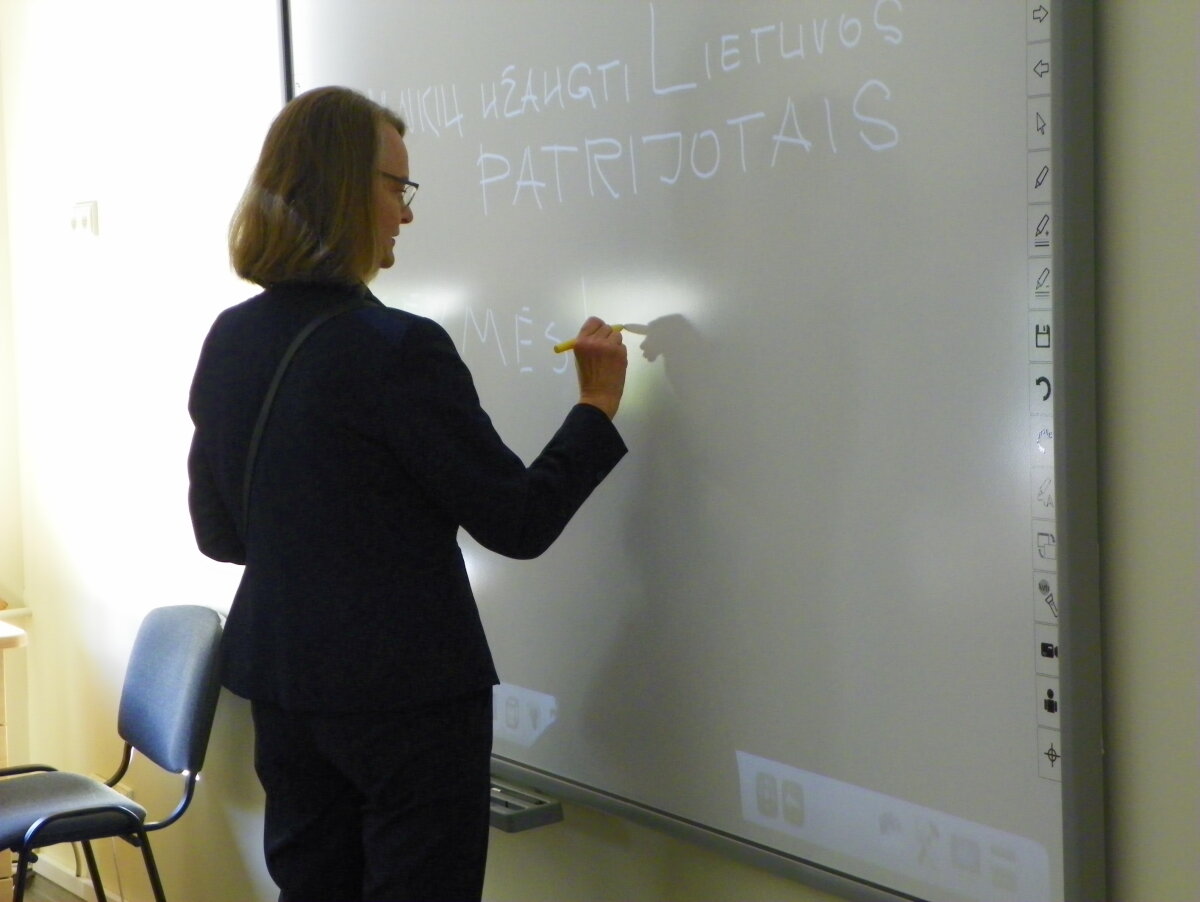 UŽAUGTI LIETUVOS
PATRIJOTAIS
MĖS